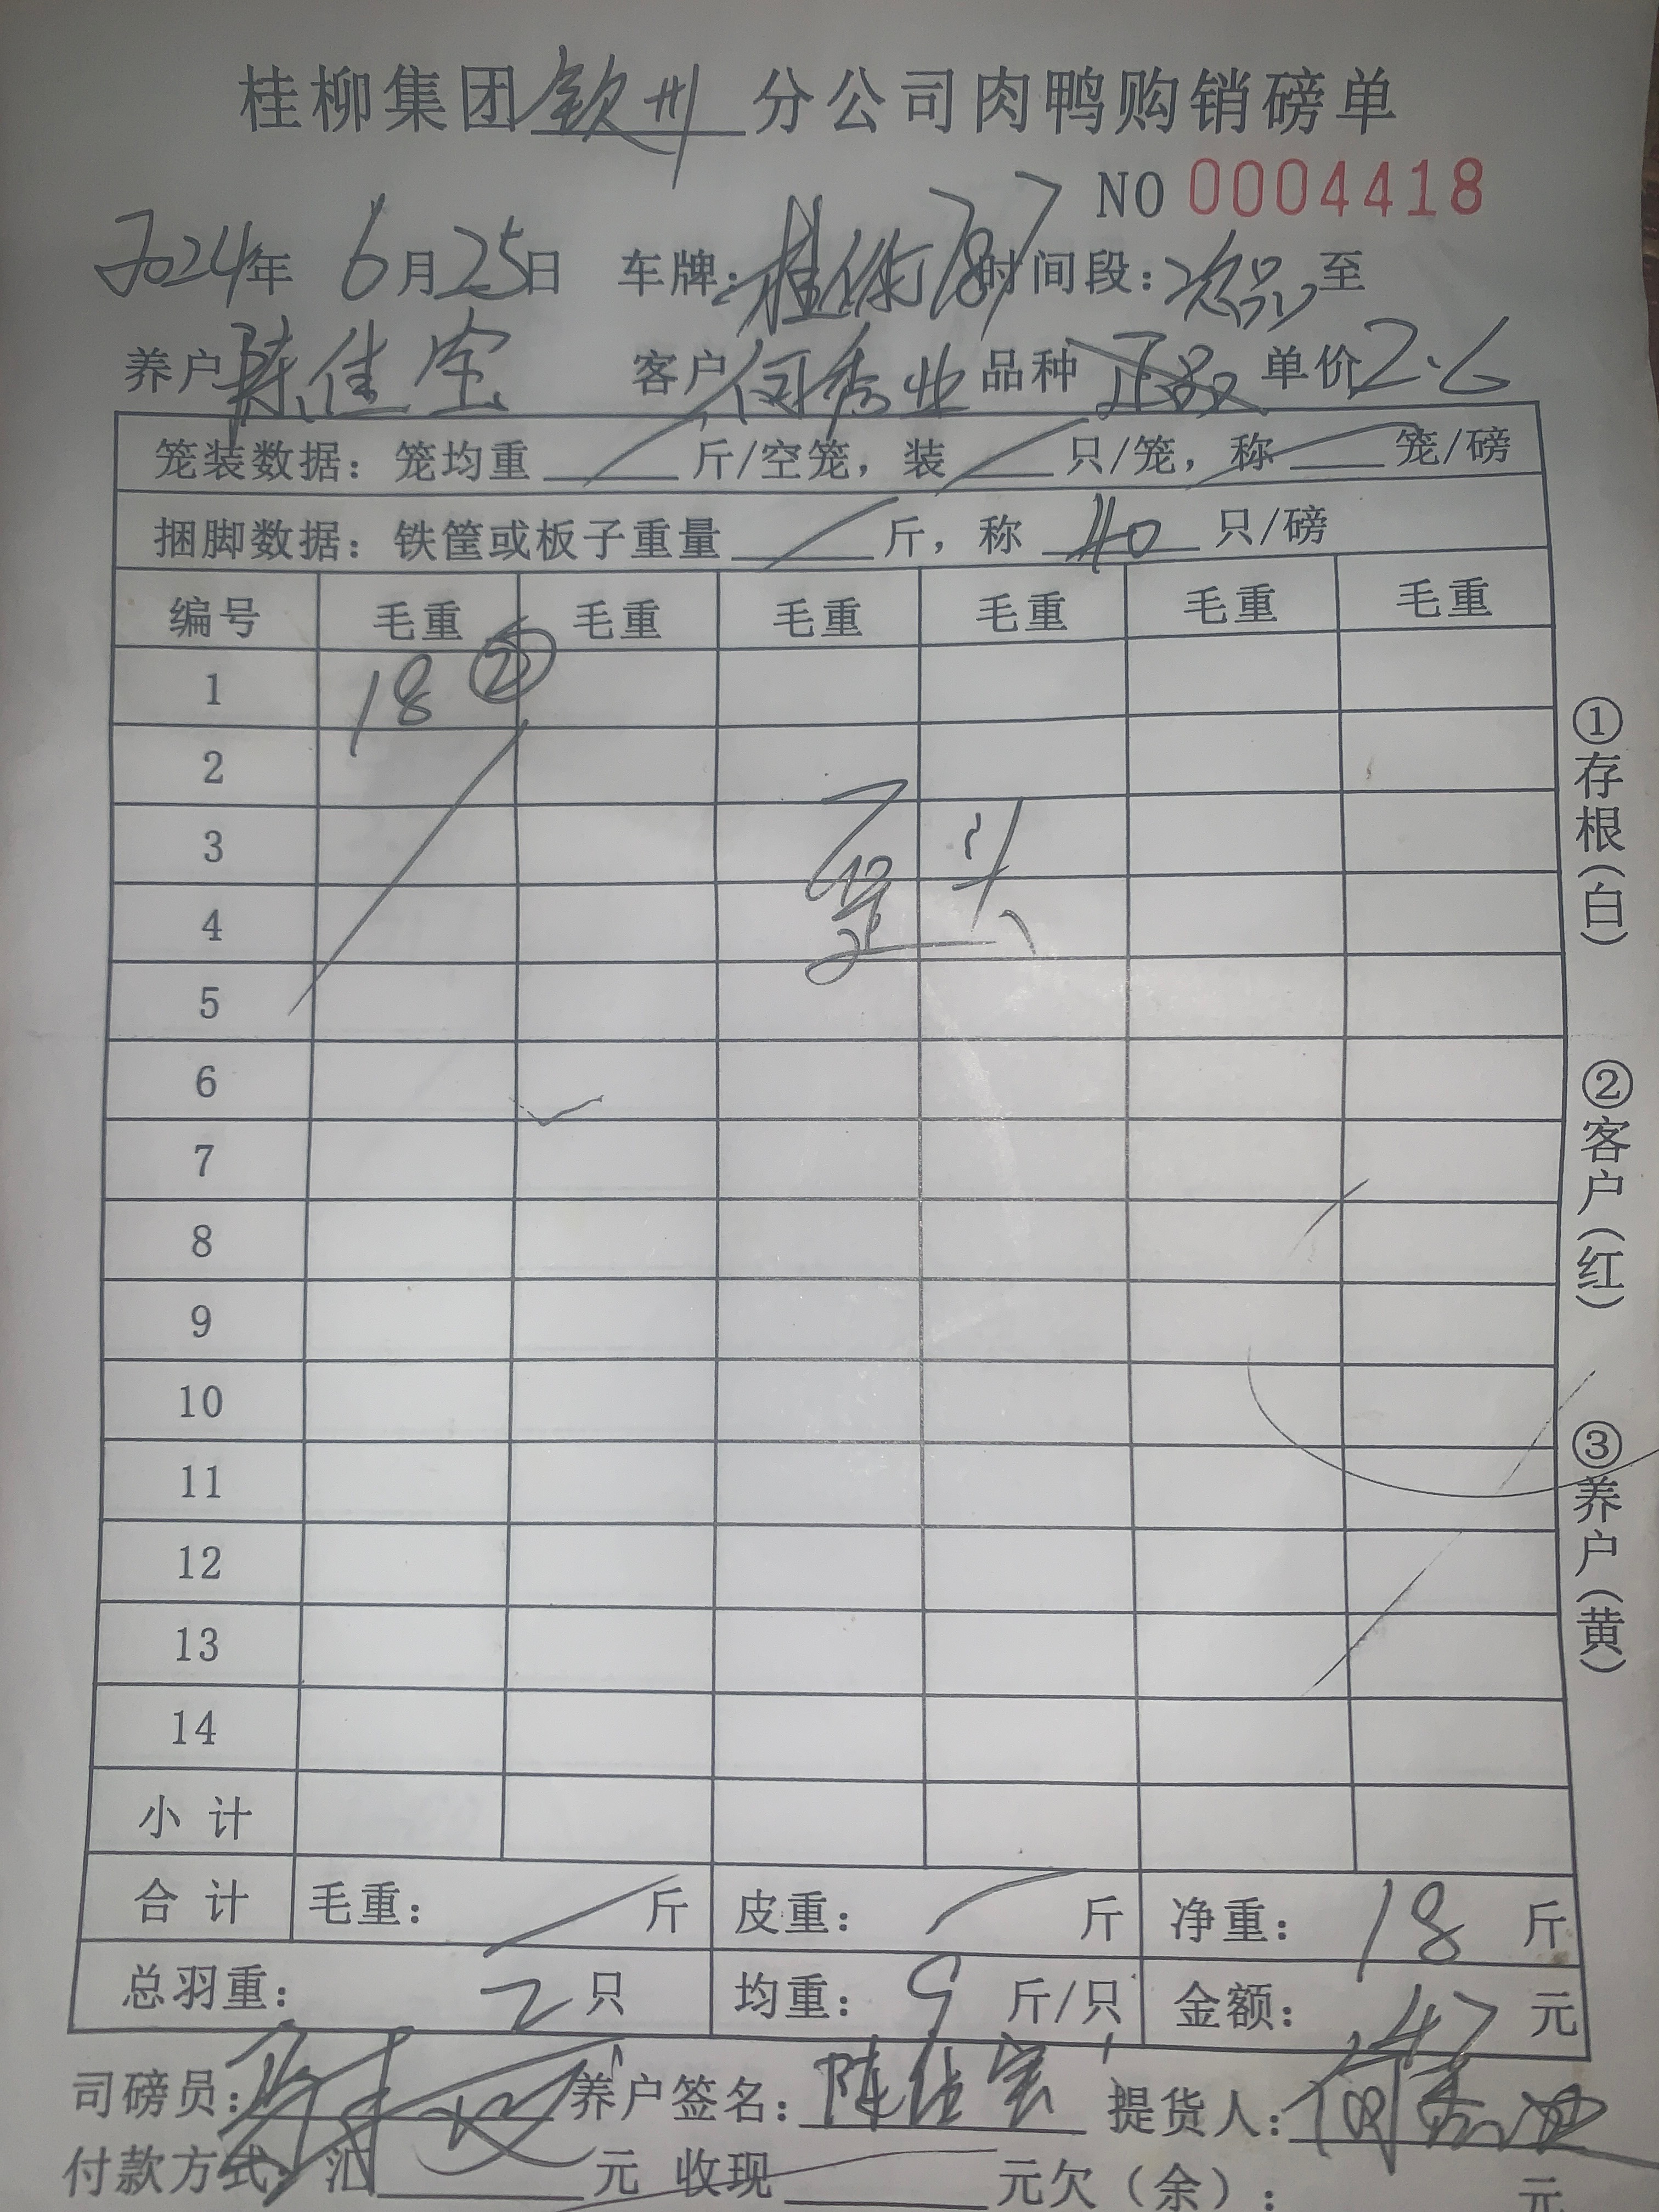 桂柳集团钦州分公司肉鸭购销磅单
NO 0004418
2024年 6月25日 车牌: 桂 787 时间段: 次品 至
养户 陈佳宝 客户 何秀业 品种 正品 单价 2.6
笼装数据: 笼均重 斤/空笼, 装 只/笼, 称 笼/磅
捆脚数据: 铁筐或板子重量 斤, 称 40 只/磅
编号 毛重 毛重 毛重 毛重 毛重 毛重
1 18 ②
2
3
4
5
6
7
8
9
10
11
12
13
14
小计
合计 毛重: 斤 皮重: 斤 净重: 18 斤
总羽重: 2 只 均重: 9 斤/只 金额: 47 元
司磅员: 养户签名: 陈佳宝 提货人: 何秀业
付款方式: 汇 元 收现 元欠(余): 元
①存根(白)
②客户(红)
③养户(黄)